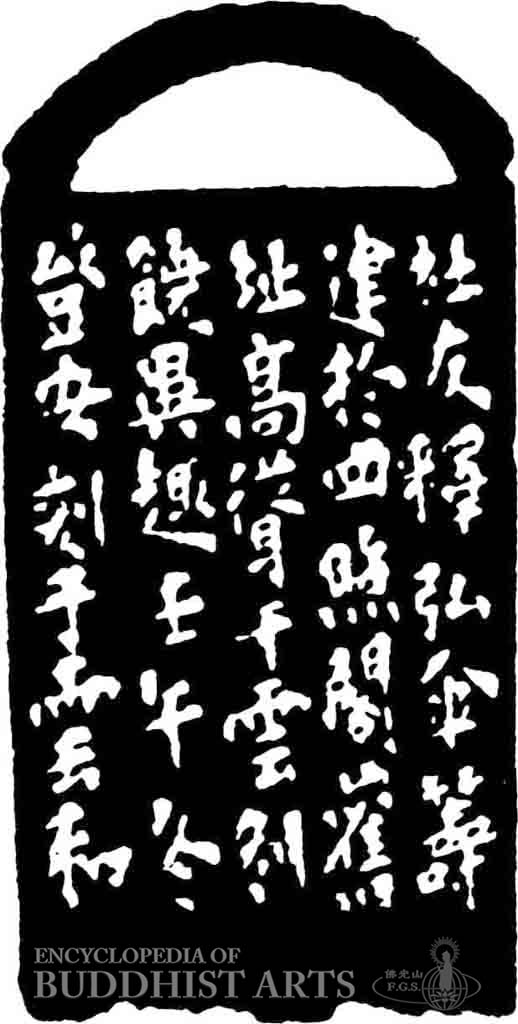 社友釋弘傘籌
建於四照閣舊
址高聳干雲別
饒異趣壬午冬
登安刻于雲和
ENCYCLOPEDIA OF
BUDDHIST ARTS
佛光山
F.G.S.